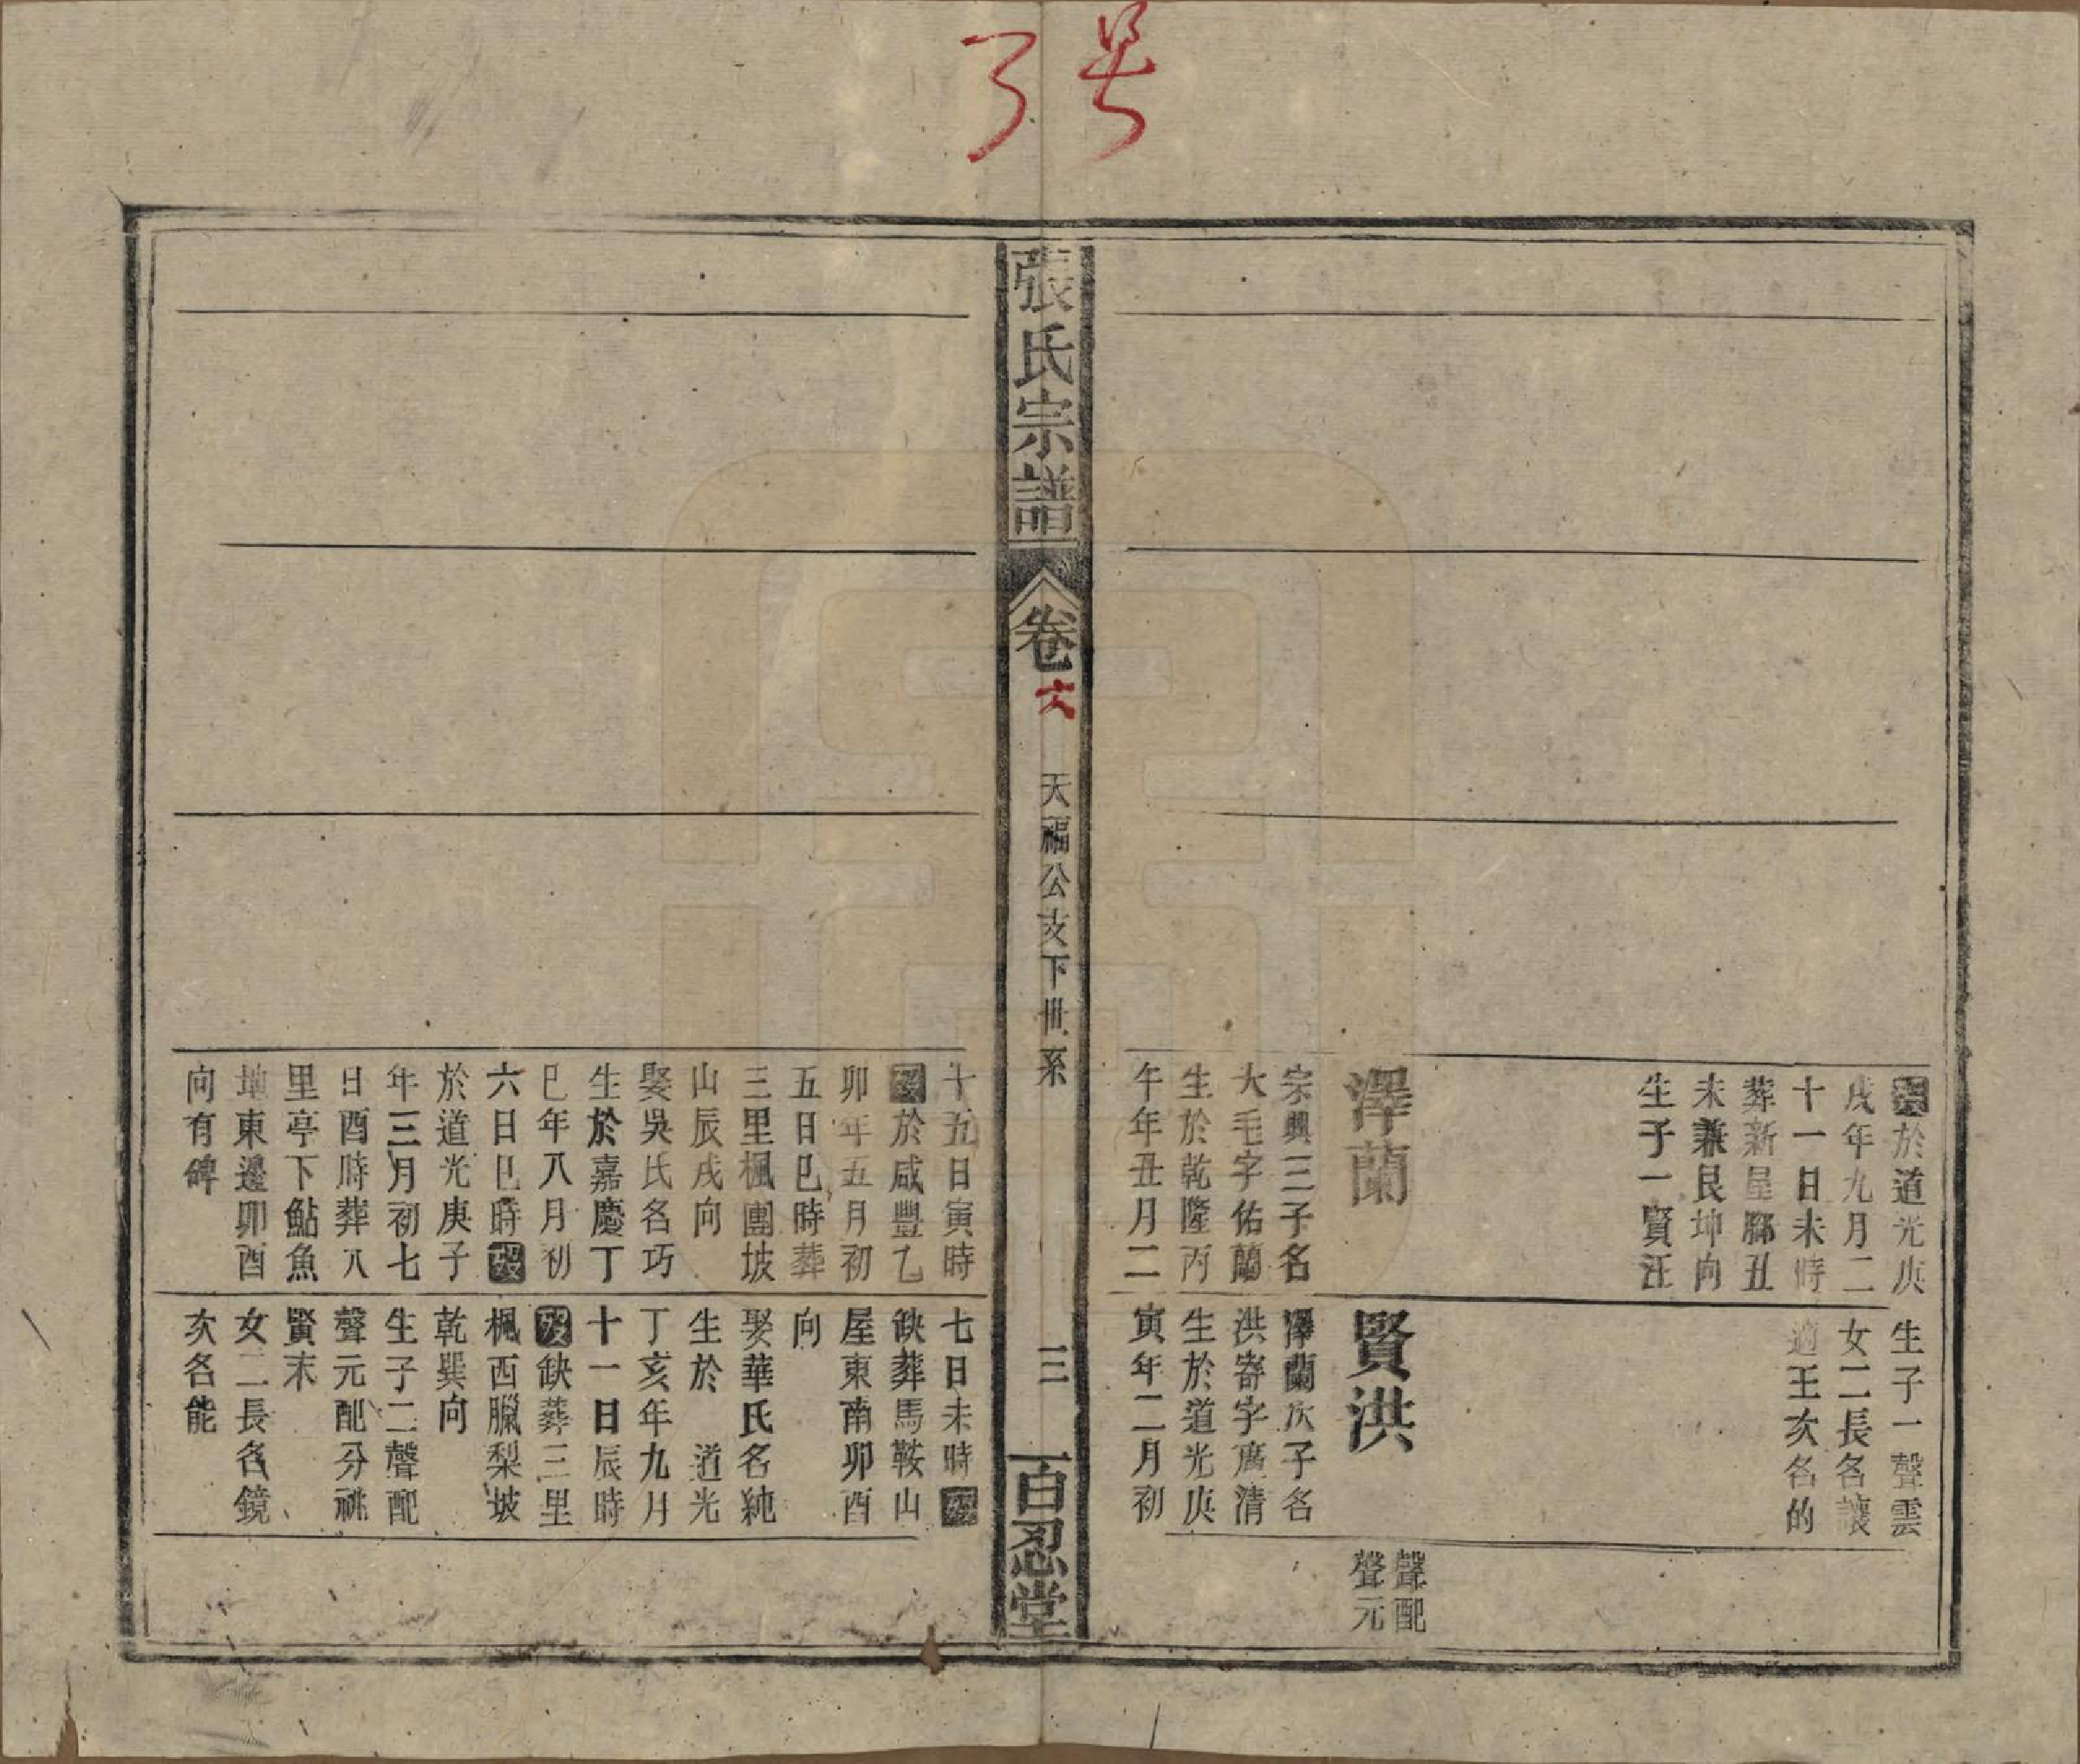 号
了
張氏宗譜
卷六
天福公支下世系
三
百忍堂
歿於道光庚
戌年九月二
十一日未時
葬新屋鄢丑
未兼艮坤向
生子一賢汪
澤蘭
宗興三子名
大毛字佑蘭
生於乾隆丙
午年丑月二
十五日寅時
歿於咸豐乙
卯年五月初
五日巳時葬
三里楓團坡
山辰戌向
娶吳氏名巧
生於嘉慶丁
巳年八月初
六日巳時歿
於道光庚子
年三月初七
日酉時葬八
里亭下鮎魚
地東邊卯酉
向有碑
生子一聲雲
女二長名讓
適王次名的
賢洪
澤蘭次子名
洪寄字廣清
生於道光庚
寅年二月初
七日未時歿
缺葬馬鞍山
屋東南卯酉
向
娶華氏名純
生於 道光
丁亥年九月
十一日辰時
歿缺葬三里
楓西臘梨坡
乾巽向
生子二聲配
聲元配分祧
賢末
女二長名鏡
次名能
聲配
聲元